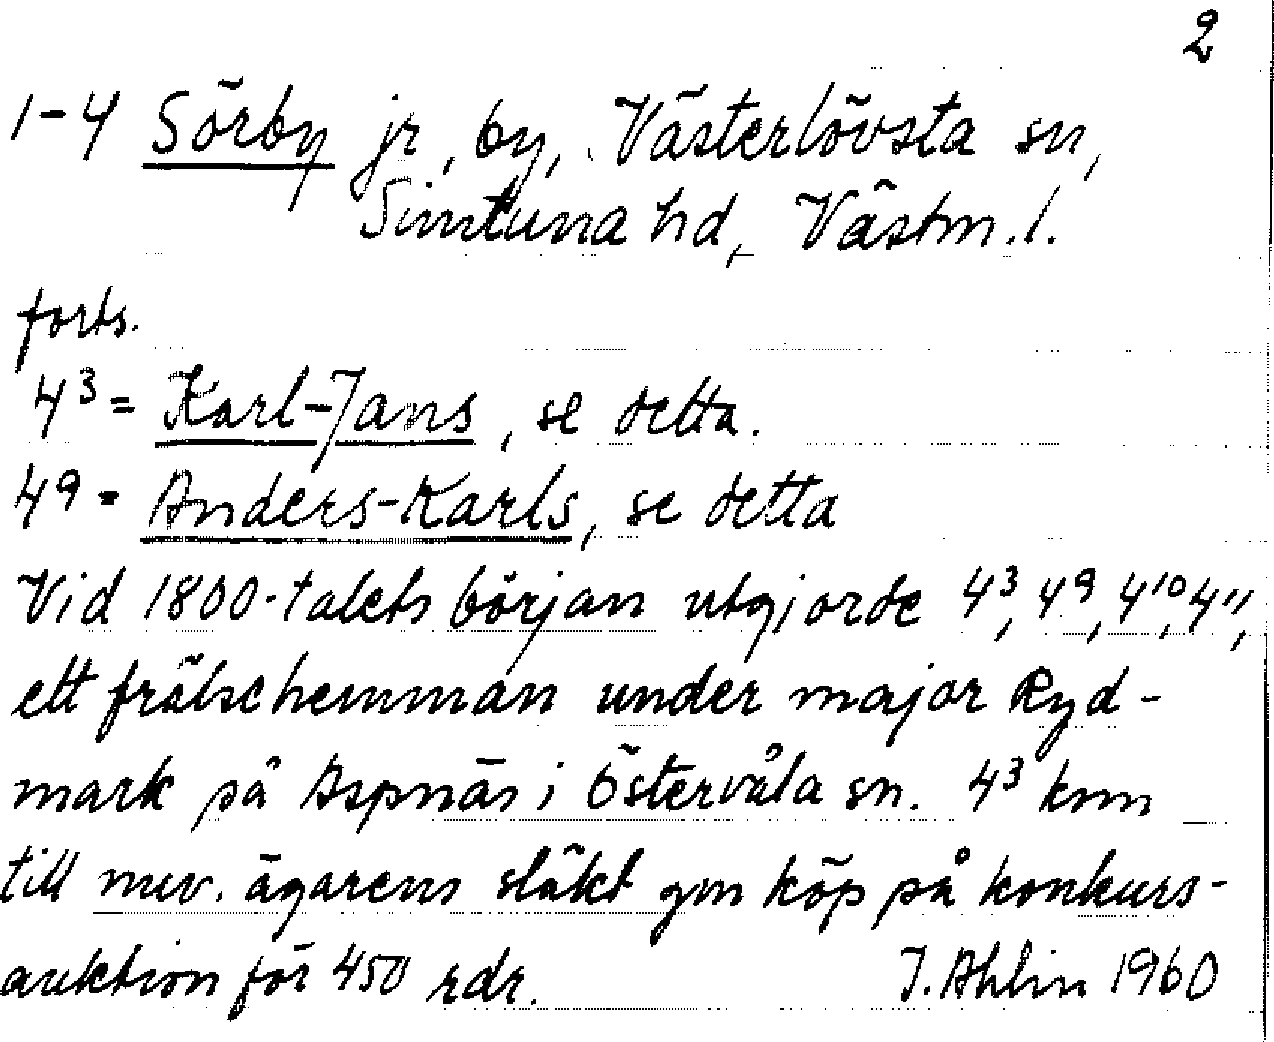 2
1-4 Sörby jr, by, Västerlövsta sn,
Simtuna hd, Västm.l.
forts.
4³ = Karl-Jans, se detta.
4⁹ = Anders-Karls, se detta
Vid 1800-talets början utgjorde 4³, 4⁹, 4¹⁰, 4¹¹,
ett frälsehemman under major Ryd-
mark på Aspnäs i Östervåla sn. 4³ kom
till nuv. ägarens släkt gm köp på konkurs-
auktion för 450 rdr. J. Ahlin 1960